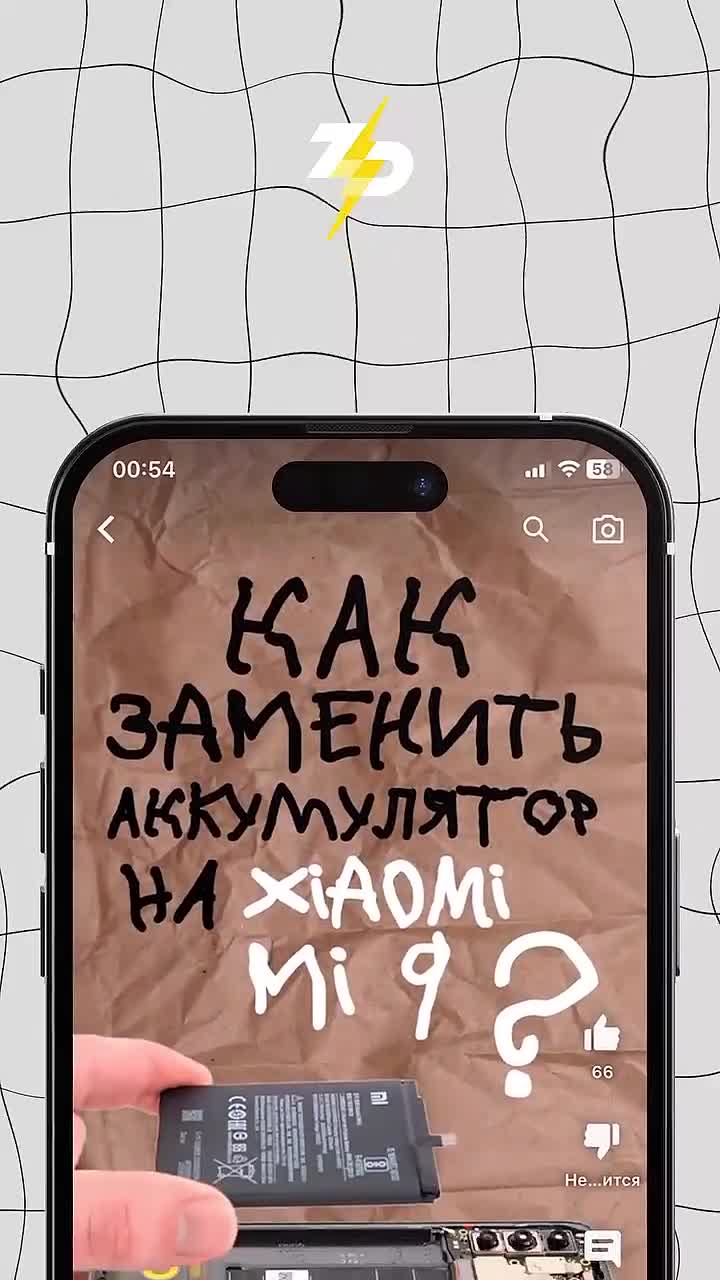 ZD
00:54
58
КАК
ЗАМЕНИТЬ
АККУМУЛЯТОР
НА XIAOMI
MI 9?
66
Не...ится
mi
CE